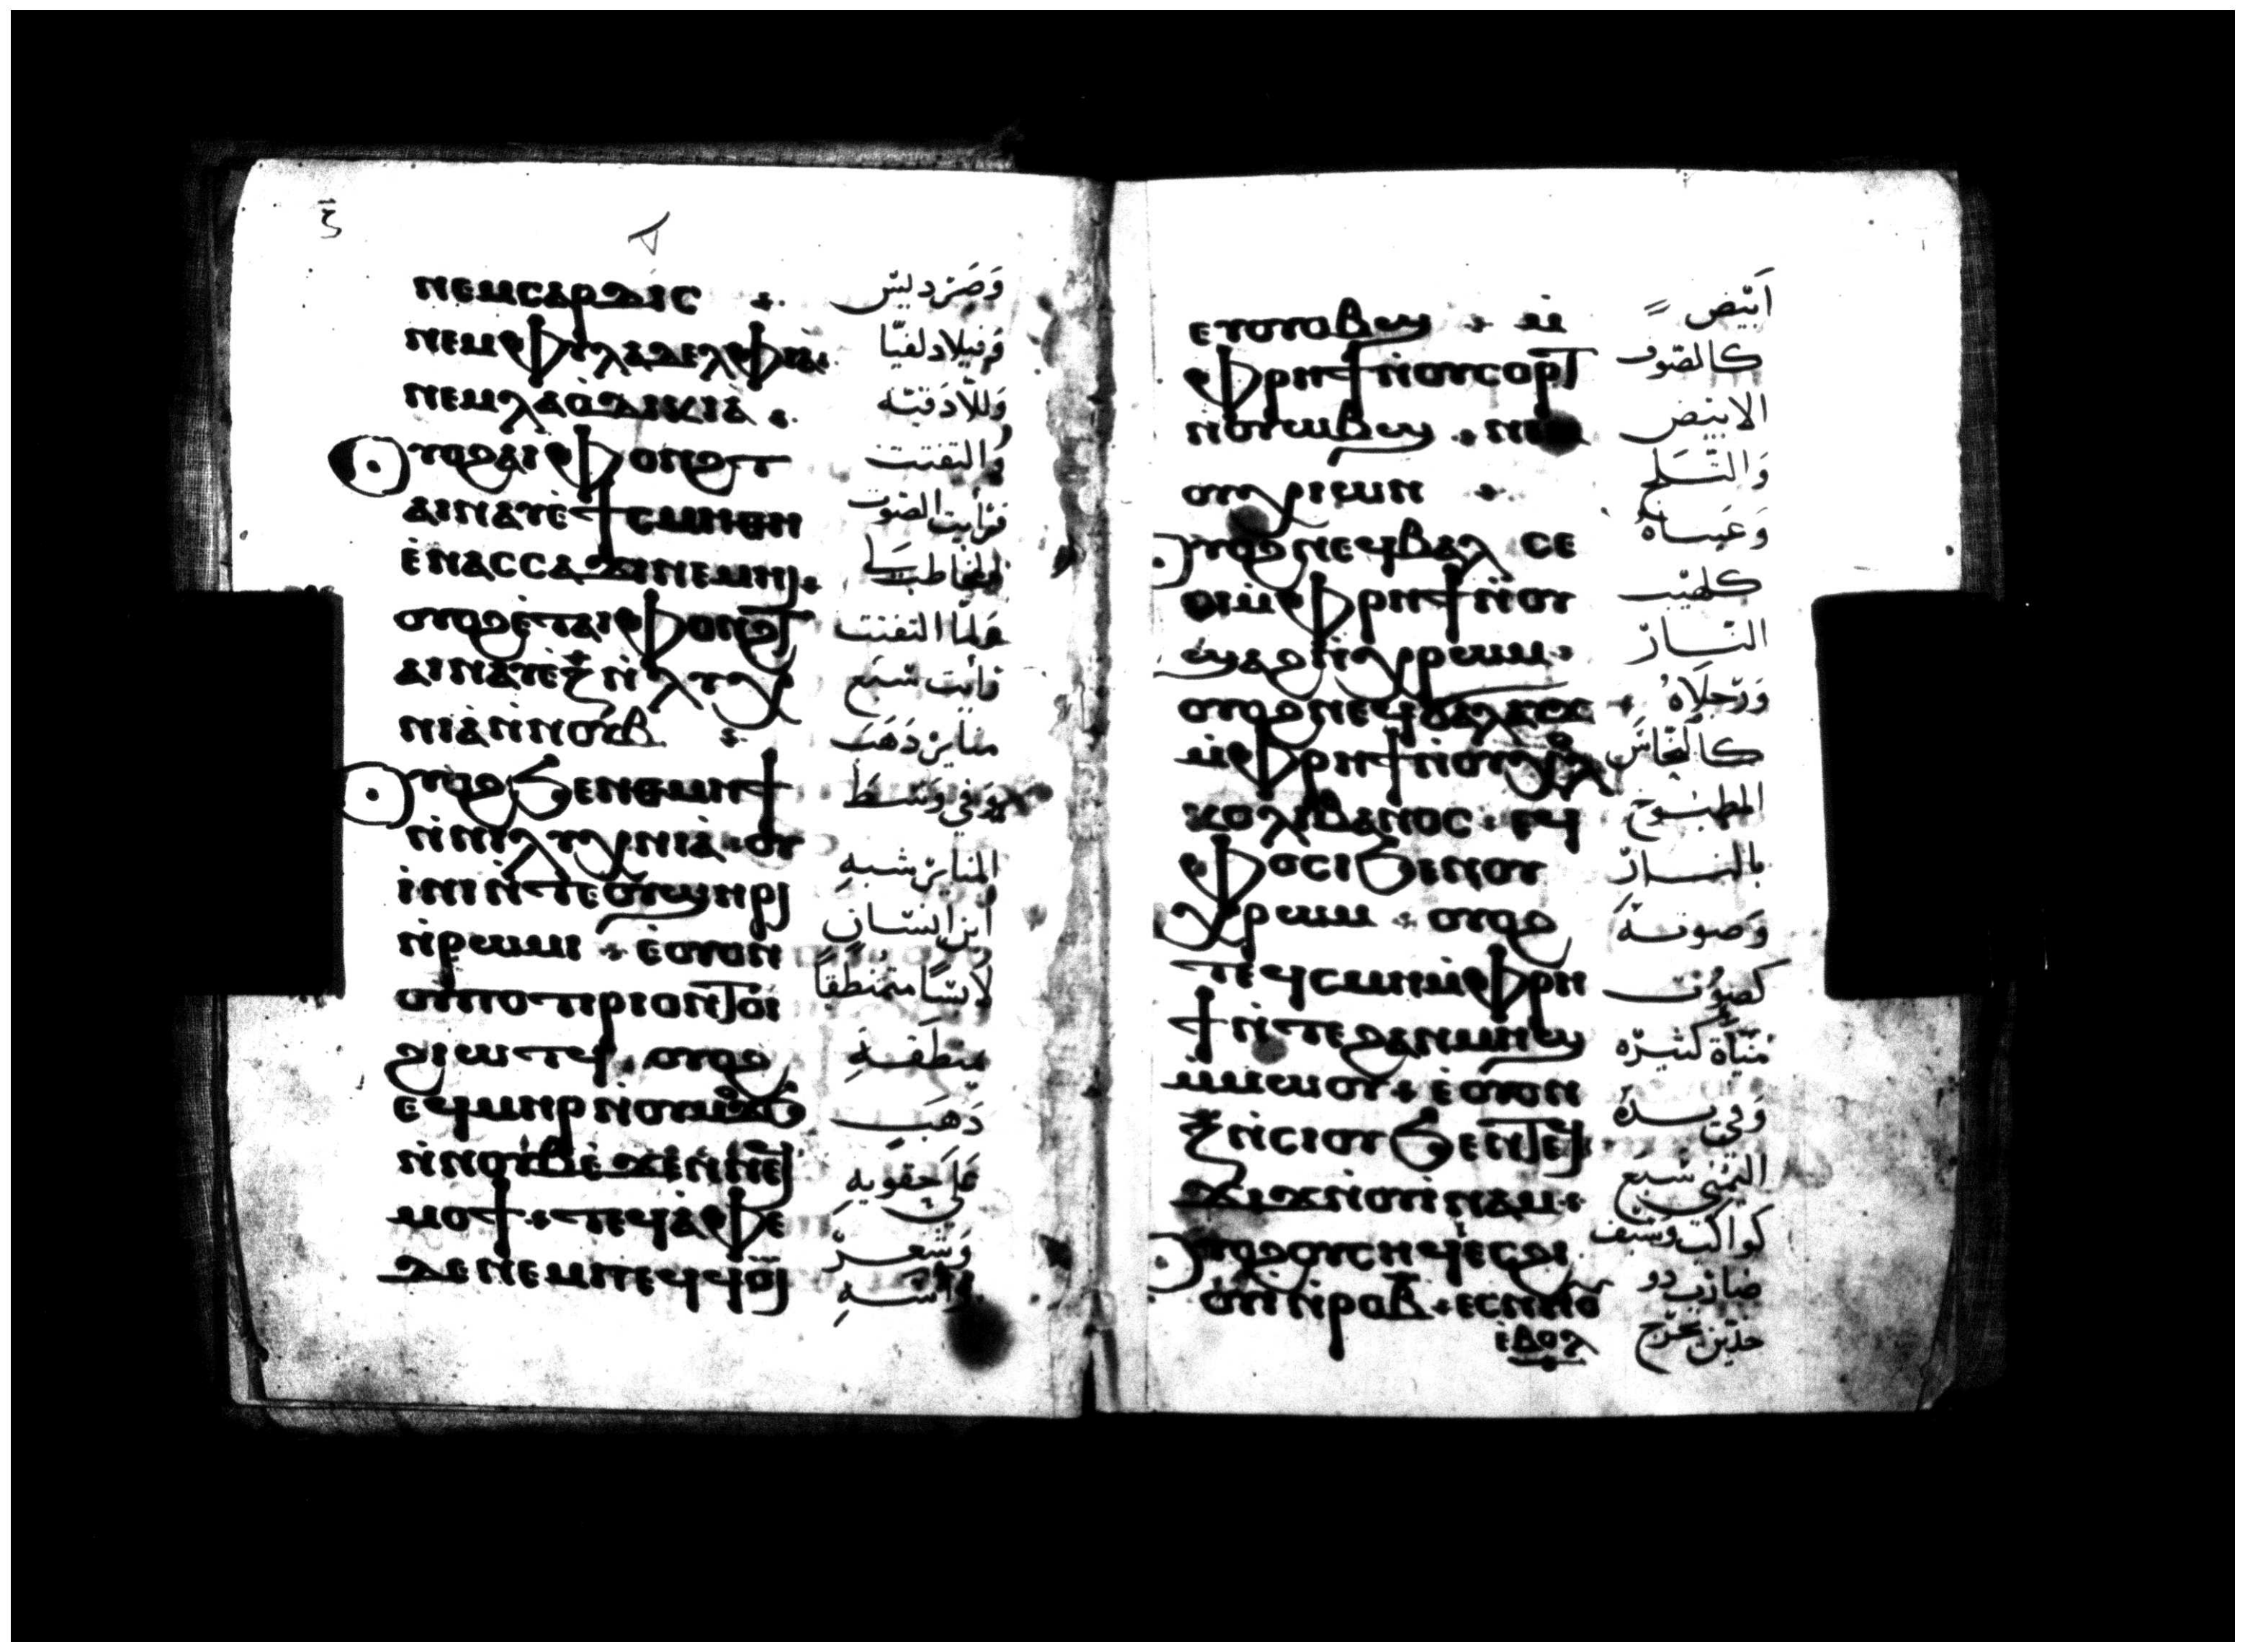 ⲛⲉⲙⲥⲁⲣⲇⲓⲥ
وَصَرْدِليسْ
ⲛⲉⲙⲫⲩⲗⲁⲇⲉⲗⲫⲓⲁ
وَفيلادلفيّا
ⲛⲉⲙⲗⲁⲟⲇⲓⲕⲓⲁ
ⲟⲩⲟϩⲁⲓⲫⲟⲛϩⲧ
والتفتت
ⲁⲓⲛⲁⲩⲉϯⲥⲙⲏⲑⲏ
فرأيت الصَوت
ⲉⲛⲁⲥⲥⲁϫⲓⲛⲉⲙⲏⲓ
ⲟⲩⲟϩⲉⲧⲁⲓⲫⲟⲛϩⲧ
فلمّا التفتت
ⲁⲓⲛⲁⲩⲉⲍⲛⲗⲩⲭ
رأيت سَبَع
ⲛⲓⲁⲛⲛⲟⲩⲃ
منايرْ دَهَبْ
ⲟⲩⲟϩϧⲉⲛⲑⲙⲏϯ
وَفي وَسَط
ⲛⲛⲓⲗⲩⲭⲛⲓⲁ ⲟⲩ
المنايرْ شبهِ
ⲓⲛⲓⲛⲧⲉⲟⲩϣⲏⲣⲓ
ابن انسان
ⲛⲣⲱⲙⲓ ⲉⲟⲩⲟⲛ
لابسًا متمنطقًا
ⲟⲩⲡⲟⲧⲏⲣⲓⲟⲛⲧⲟⲓ
منطَقةِ
ϩⲓⲱⲧϥ ⲟⲩⲟϩ
دَهَبْ
ⲉϥⲙⲏⲣⲛⲟⲩⲙⲟϫϧ
عَلى حَقويهِ
ⲛⲛⲟⲩⲃⲉϫⲉⲛⲛⲉϥ
وَشعرْ
ⲙⲟϯ ⲧⲉϥⲁⲫⲉ
رَاسَهِ
ⲇⲉⲛⲉⲙⲡⲉϥϥⲱⲓ
ⲉⲩⲟⲩⲟⲃϣ ⲙ
اَبيَض
ⲫⲣⲏϯⲛⲟⲩⲥⲟⲣⲧ
كالصّوف
ⲛⲟⲩⲱⲃϣ ⲛⲉⲙ
الابيَض
ⲟⲩⲭⲓⲱⲛ
وَالتّلج
ⲟⲩⲟϩⲛⲉϥⲃⲁⲗ ⲥⲉ
وَعَيناهُ
ⲟⲓⲙⲫⲣⲏϯⲛⲟⲩ
كلهيب
ϣⲁϩⲛⲭⲣⲱⲙ
النّارْ
ⲟⲩⲟϩⲛⲉϥϭⲁⲗⲁⲩϫ
وَرجلاهُ
ⲙⲫⲣⲏϯⲛⲟⲩⲭⲁⲗ
كالنّحاسْ
ⲕⲟⲗⲓⲃⲁⲛⲟⲥ ⲉϥ
المطبوخ
ⲫⲟⲥⲓϧⲉⲛⲟⲩ
بالنارْ
ⲭⲣⲱⲙ ⲟⲩⲟϩ
وَصوتهُ
ⲧⲉϥⲥⲙⲏⲙⲫⲣⲏ
كصَوت
ϯⲛⲧⲉϩⲁⲛⲙⲏϣ
ميَاة كثيرَة
ⲙⲙⲱⲟⲩ ⲉⲟⲩⲟⲛ
وَفي يدهُ
ⲍⲛⲥⲓⲟⲩϧⲉⲛⲧⲉϥ
اليمني سَبَع
ϫⲓϫⲛⲟⲩⲓⲛⲁⲙ
كواكب وسَيف
ⲟⲩⲟϩⲟⲩⲥⲏϥⲓⲉⲥϩⲓ
ضارب دو
ⲟⲩⲓⲛⲣⲟⲃ ⲉⲥⲛⲏⲟⲩ
حدّين يخرَج
ⲉⲃⲟⲗ